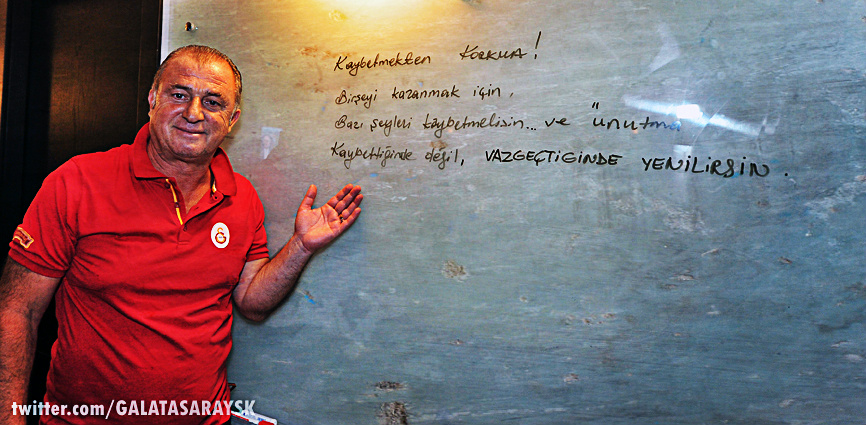 Kaybetmekten KORKMA!
Birşeyi kazanmak için,
Bazı şeyleri kaybetmelisin... ve "unutma
Kaybettiğinde değil, VAZGEÇTİĞİNDE YENİLİRSİN.
twitter.com/GALATASARAYSK